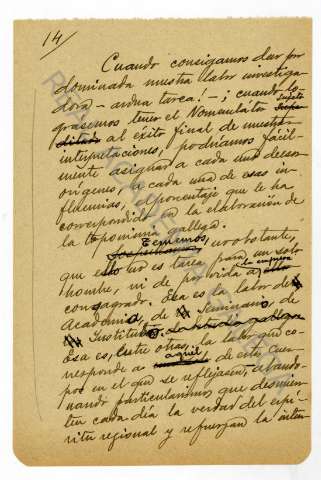 14/
Cuando consigamos dar por
dominada nuestra labor investiga-
dora — ardua tarea! —; cuando lo-
sujeto
grásemos tener el Nomenclátor
ditado al éxito final de nuestras
interpretaciones, podríamos fácil-
mente asignar a cada uno de esos
orígenes, a cada una de esas in-
fluencias, el porcentaje que le ha
correspondido en la elaboración de
la toponimia gallega.
Tememos, no obstante,
que esto no es tarea para un solo
la empresa
hombre, ni de por vida a
consagrado. Esa es la labor de
Academia, de Seminario, de
Instituto
Esa es, entre otras, la labor que co-
aquél
rresponde a de este, cuer-
pos en el que se reflejasen, abando-
nando particularismos que desmien-
ten cada día la verdad del espí-
ritu regional y refuerzan la